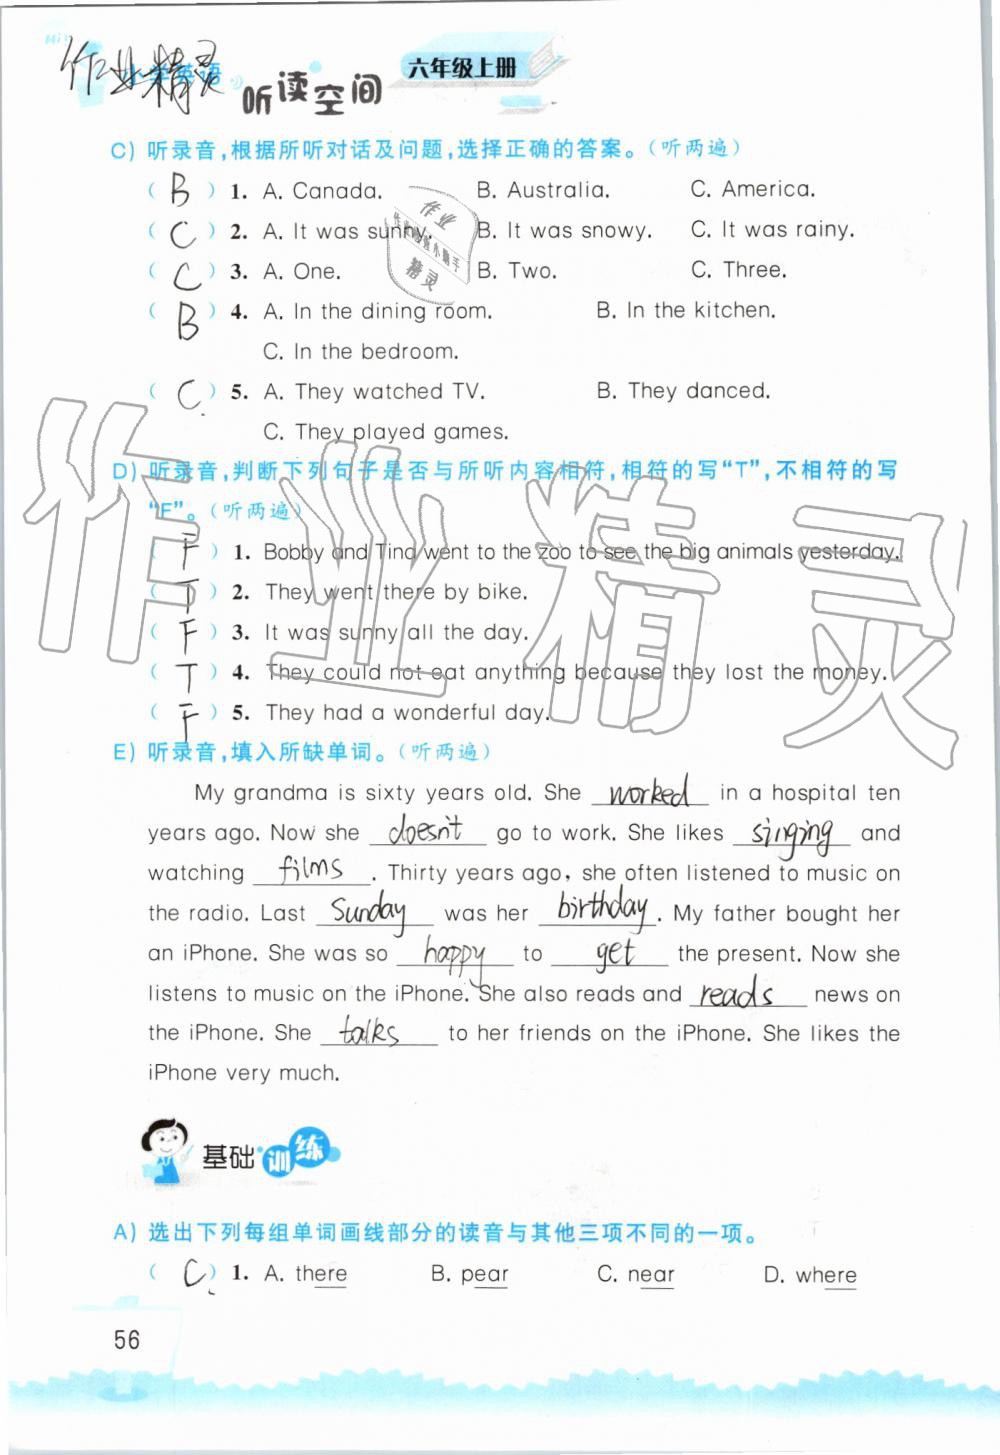 作业精灵
小学英语
听读空间
六年级上册
C) 听录音,根据所听对话及问题,选择正确的答案。(听两遍)
( B ) 1. A. Canada. B. Australia. C. America.
( C ) 2. A. It was sunny. B. It was snowy. C. It was rainy.
( C ) 3. A. One. B. Two. C. Three.
( B ) 4. A. In the dining room. B. In the kitchen.
C. In the bedroom.
( C ) 5. A. They watched TV. B. They danced.
C. They played games.
D) 听录音,判断下列句子是否与所听内容相符,相符的写“T”,不相符的写
“F”。(听两遍)
( F ) 1. Bobby and Tina went to the zoo to see the big animals yesterday.
( T ) 2. They went there by bike.
( F ) 3. It was sunny all the day.
( T ) 4. They could not eat anything because they lost the money.
( F ) 5. They had a wonderful day.
E) 听录音,填入所缺单词。(听两遍)
My grandma is sixty years old. She worked in a hospital ten
years ago. Now she doesn't go to work. She likes singing and
watching films. Thirty years ago, she often listened to music on
the radio. Last Sunday was her birthday. My father bought her
an iPhone. She was so happy to get the present. Now she
listens to music on the iPhone. She also reads and reads news on
the iPhone. She talks to her friends on the iPhone. She likes the
iPhone very much.
基础训练
A) 选出下列每组单词画线部分的读音与其他三项不同的一项。
( C ) 1. A. there B. pear C. near D. where
56
作业精灵